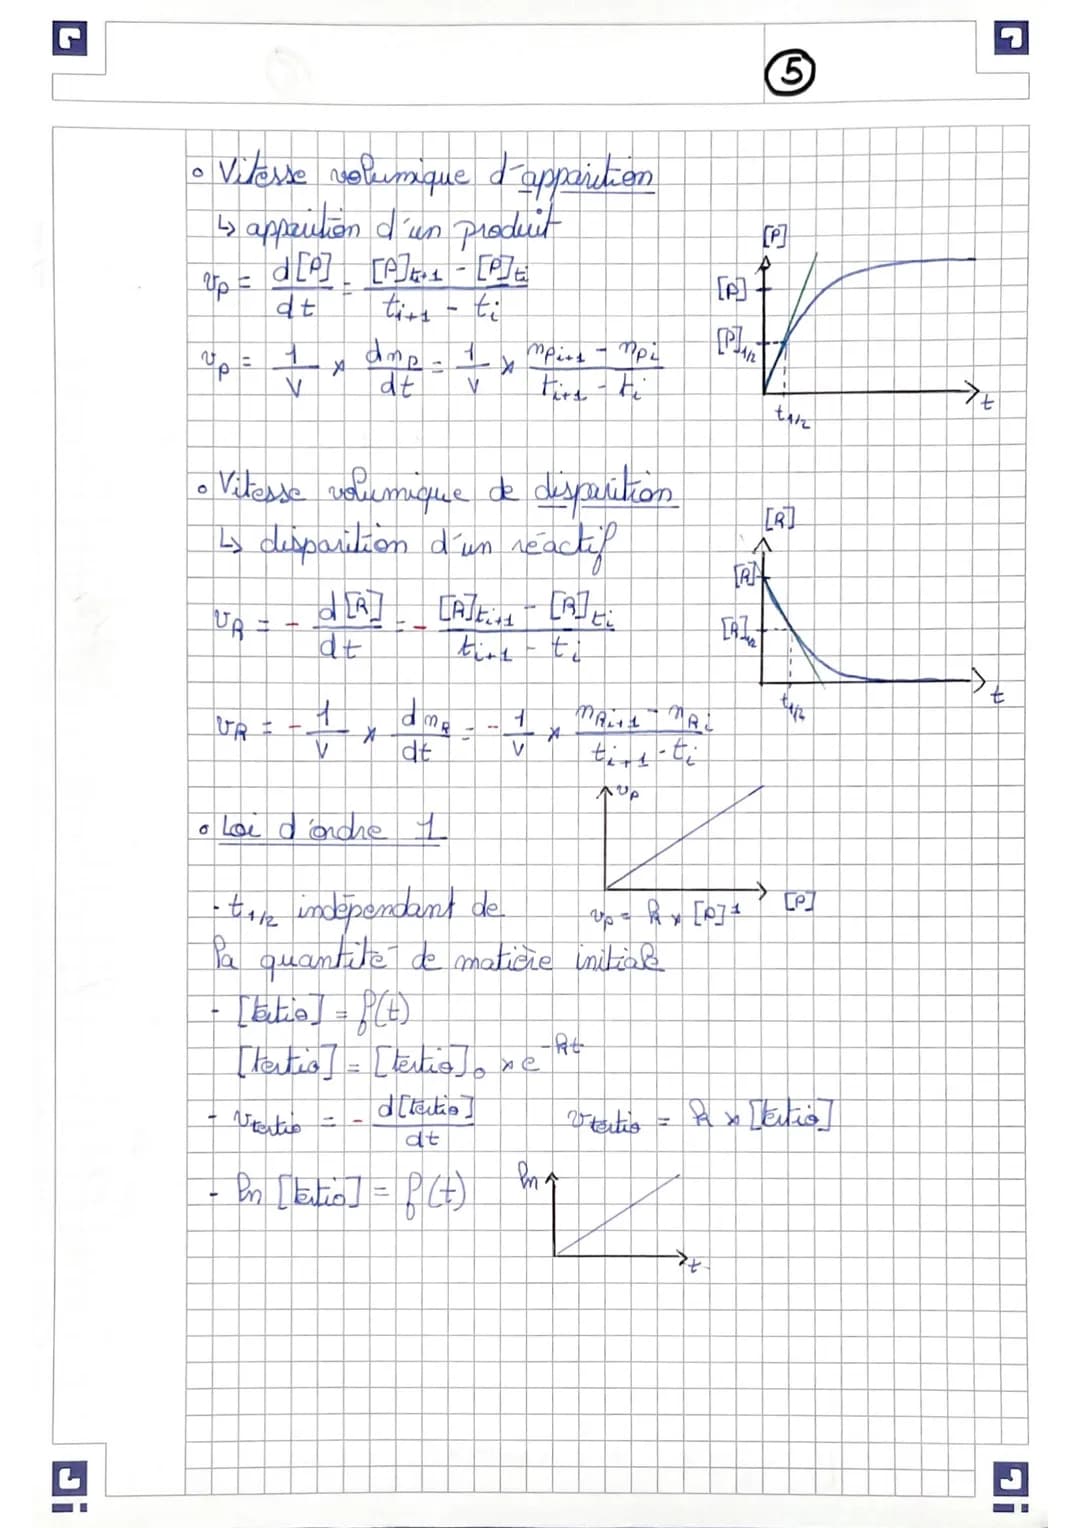 5
• Vitesse volumique d'apparition
↳ apparition d'un produit
v_P = d[P]/dt = ([P]_{ti+1} - [P]_{ti})/(t_{i+1} - t_i)
v_P = 1/V × dn_P/dt = 1/V × (n_{Pi+1} - n_{Pi})/(t_{i+1} - t_i)
[P]
[P]
[P]_{1/2}
t_{1/2}
t
• Vitesse volumique de disparition
↳ disparition d'un réactif
v_R = - d[R]/dt = - ([R]_{ti+1} - [R]_{ti})/(t_{i+1} - t_i)
v_R = - 1/V × dn_R/dt = - 1/V × (n_{Ri+1} - n_{Ri})/(t_{i+1} - t_i)
[R]
[R]
[R]_{1/2}
t_{1/2}
t
• Loi d'ordre 1
v_P
[P]
v_P = k × [P]^1
- t_{1/2} indépendant de
la quantité de matière initiale
- [tertio] = f(t)
[tertio] = [tertio]_0 × e^{-kt}
- v_{tertio} = - d[tertio]/dt
v_{tertio} = k × [tertio]
- ln [tertio] = f(t)
ln
t